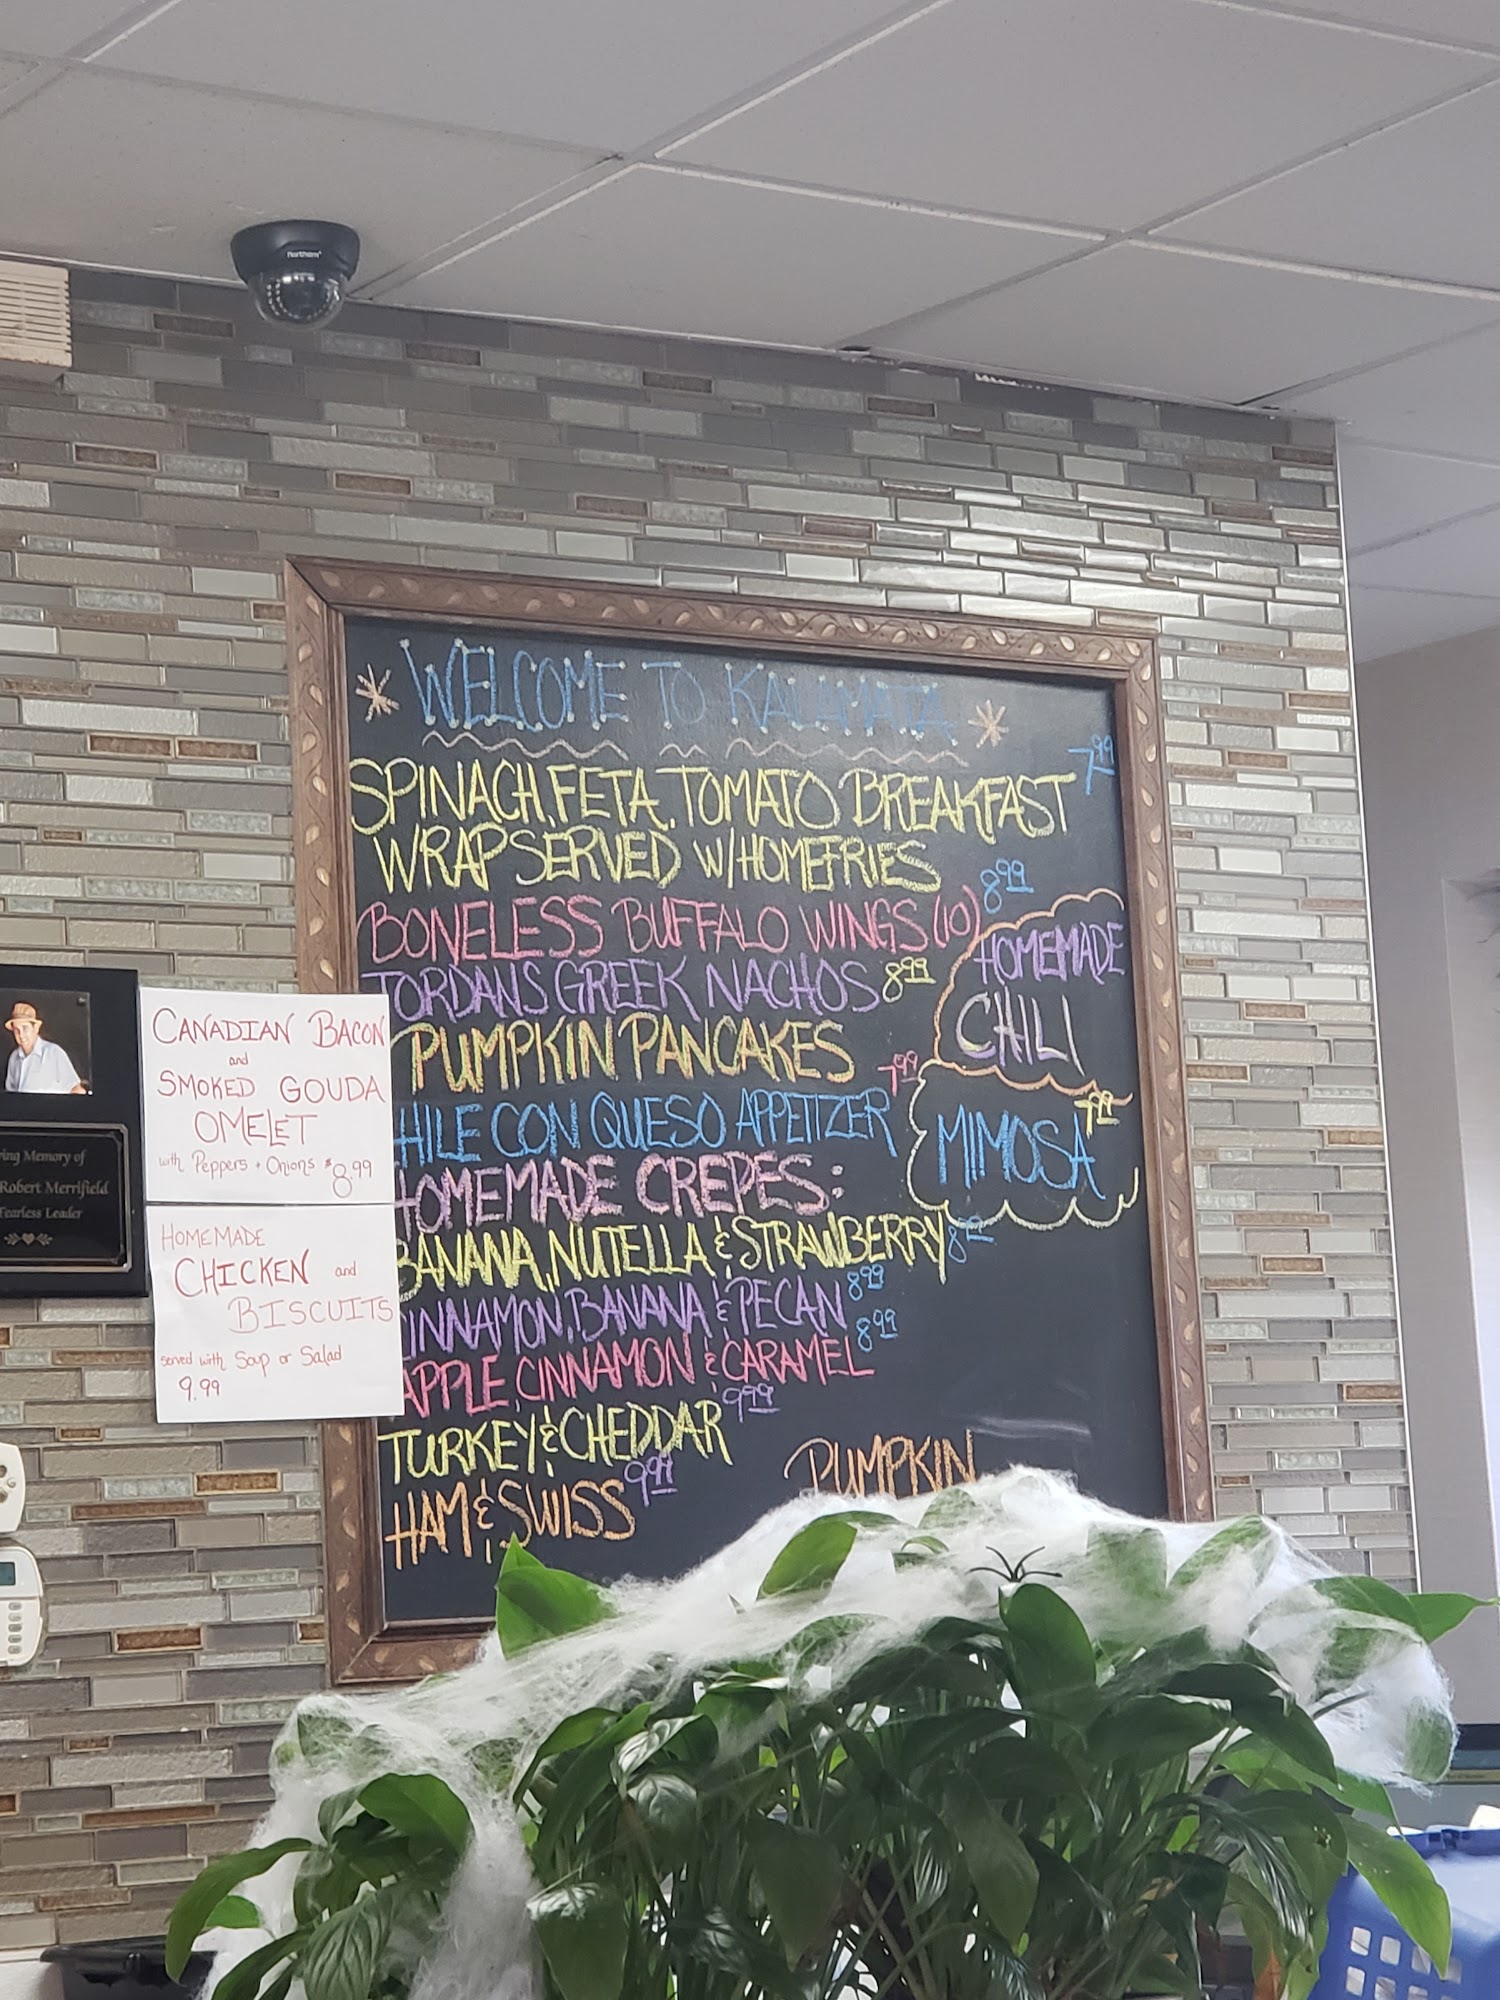 Northern
WELCOME TO KALAMATA
7.99
SPINACH, FETA, TOMATO BREAKFAST
WRAP SERVED W/HOMEFRIES
8.99
BONELESS BUFFALO WINGS (10)
JORDAN'S GREEK NACHOS 8.99
PUMPKIN PANCAKES
7.99
HILE CON QUESO APPETIZER
HOMEMADE CREPES:
BANANA, NUTELLA & STRAWBERRY 8.99
CINNAMON, BANANA & PECAN 8.99
APPLE, CINNAMON & CARAMEL 8.99
TURKEY & CHEDDAR 9.99
HAM & SWISS 9.99
HOMEMADE
CHILI
MIMOSA 7.99
PUMPKIN
CANADIAN BACON
and
SMOKED GOUDA
OMELET
with Peppers + Onions $8.99
HOMEMADE
CHICKEN and
BISCUITS
served with Soup or Salad
9.99
ing Memory of
Robert Merrifield
Fearless Leader